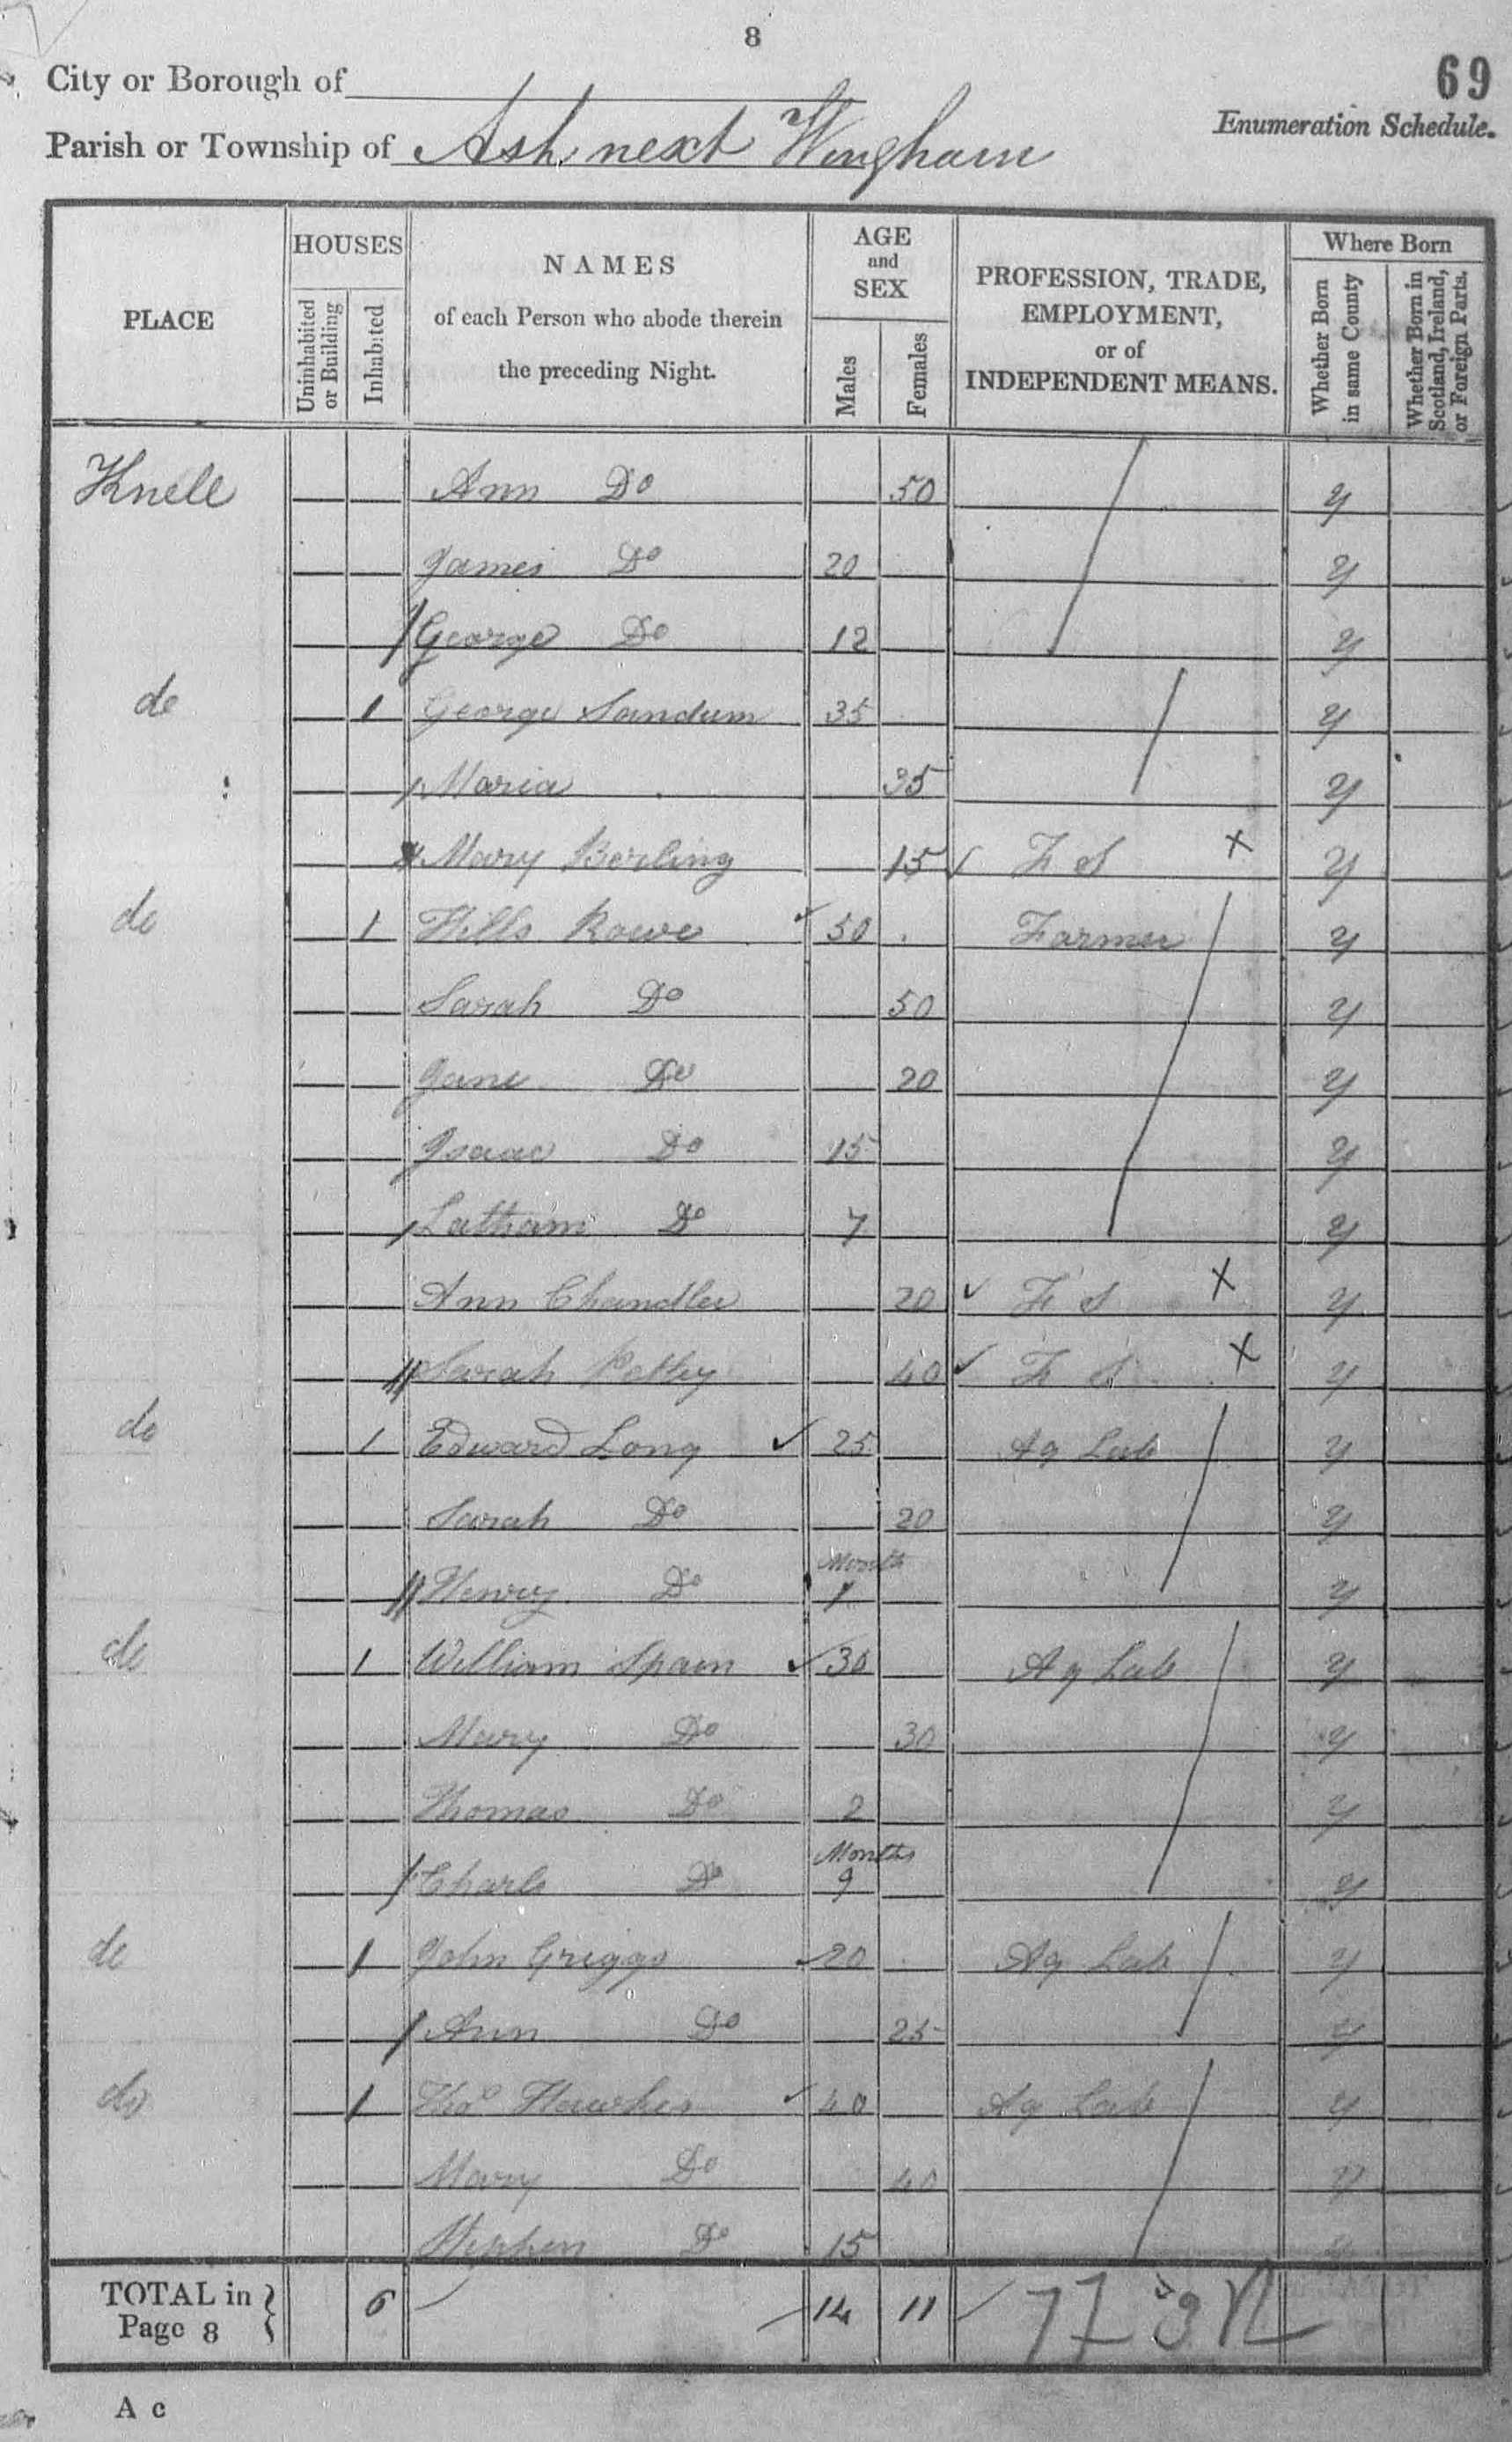 8
69
City or Borough of
Enumeration Schedule.
Parish or Township of Ash next Wingham
PLACE
HOUSES
Uninhabited or Building
Inhabited
NAMES
of each Person who abode therein
the preceding Night.
AGE and SEX
Males
Females
PROFESSION, TRADE,
EMPLOYMENT,
or of
INDEPENDENT MEANS.
Where Born
Whether Born in same County
Whether Born in Scotland, Ireland, or Foreign Parts.
Knell Ann Do 50 y
James Do 20 y
George Do 12 y
do 1 George Sandum 35 y
Maria 35 y
Mary Berling 15 F S X y
do 1 Hills Rowe 50 Farmer y
Sarah Do 50 y
Jane Do 20 y
Isaac Do 15 y
Latham Do 7 y
Ann Chandler 20 F S X y
Sarah Pettey 40 F S X y
do 1 Edward Long 25 Ag Lab y
Sarah Do 20 y
Month
Henry Do 1 y
do 1 William Spain 30 Ag Lab y
Mary Do 30 y
Thomas Do 2 y
Months
Charls Do 9 y
do 1 John Griggs 20 Ag Lab y
Ann Do 25 y
do 1 Thos Hawkes 40 Ag Lab y
Mary Do 40 y
Stephen Do 15 y
TOTAL in Page 8 6 14 11
A c